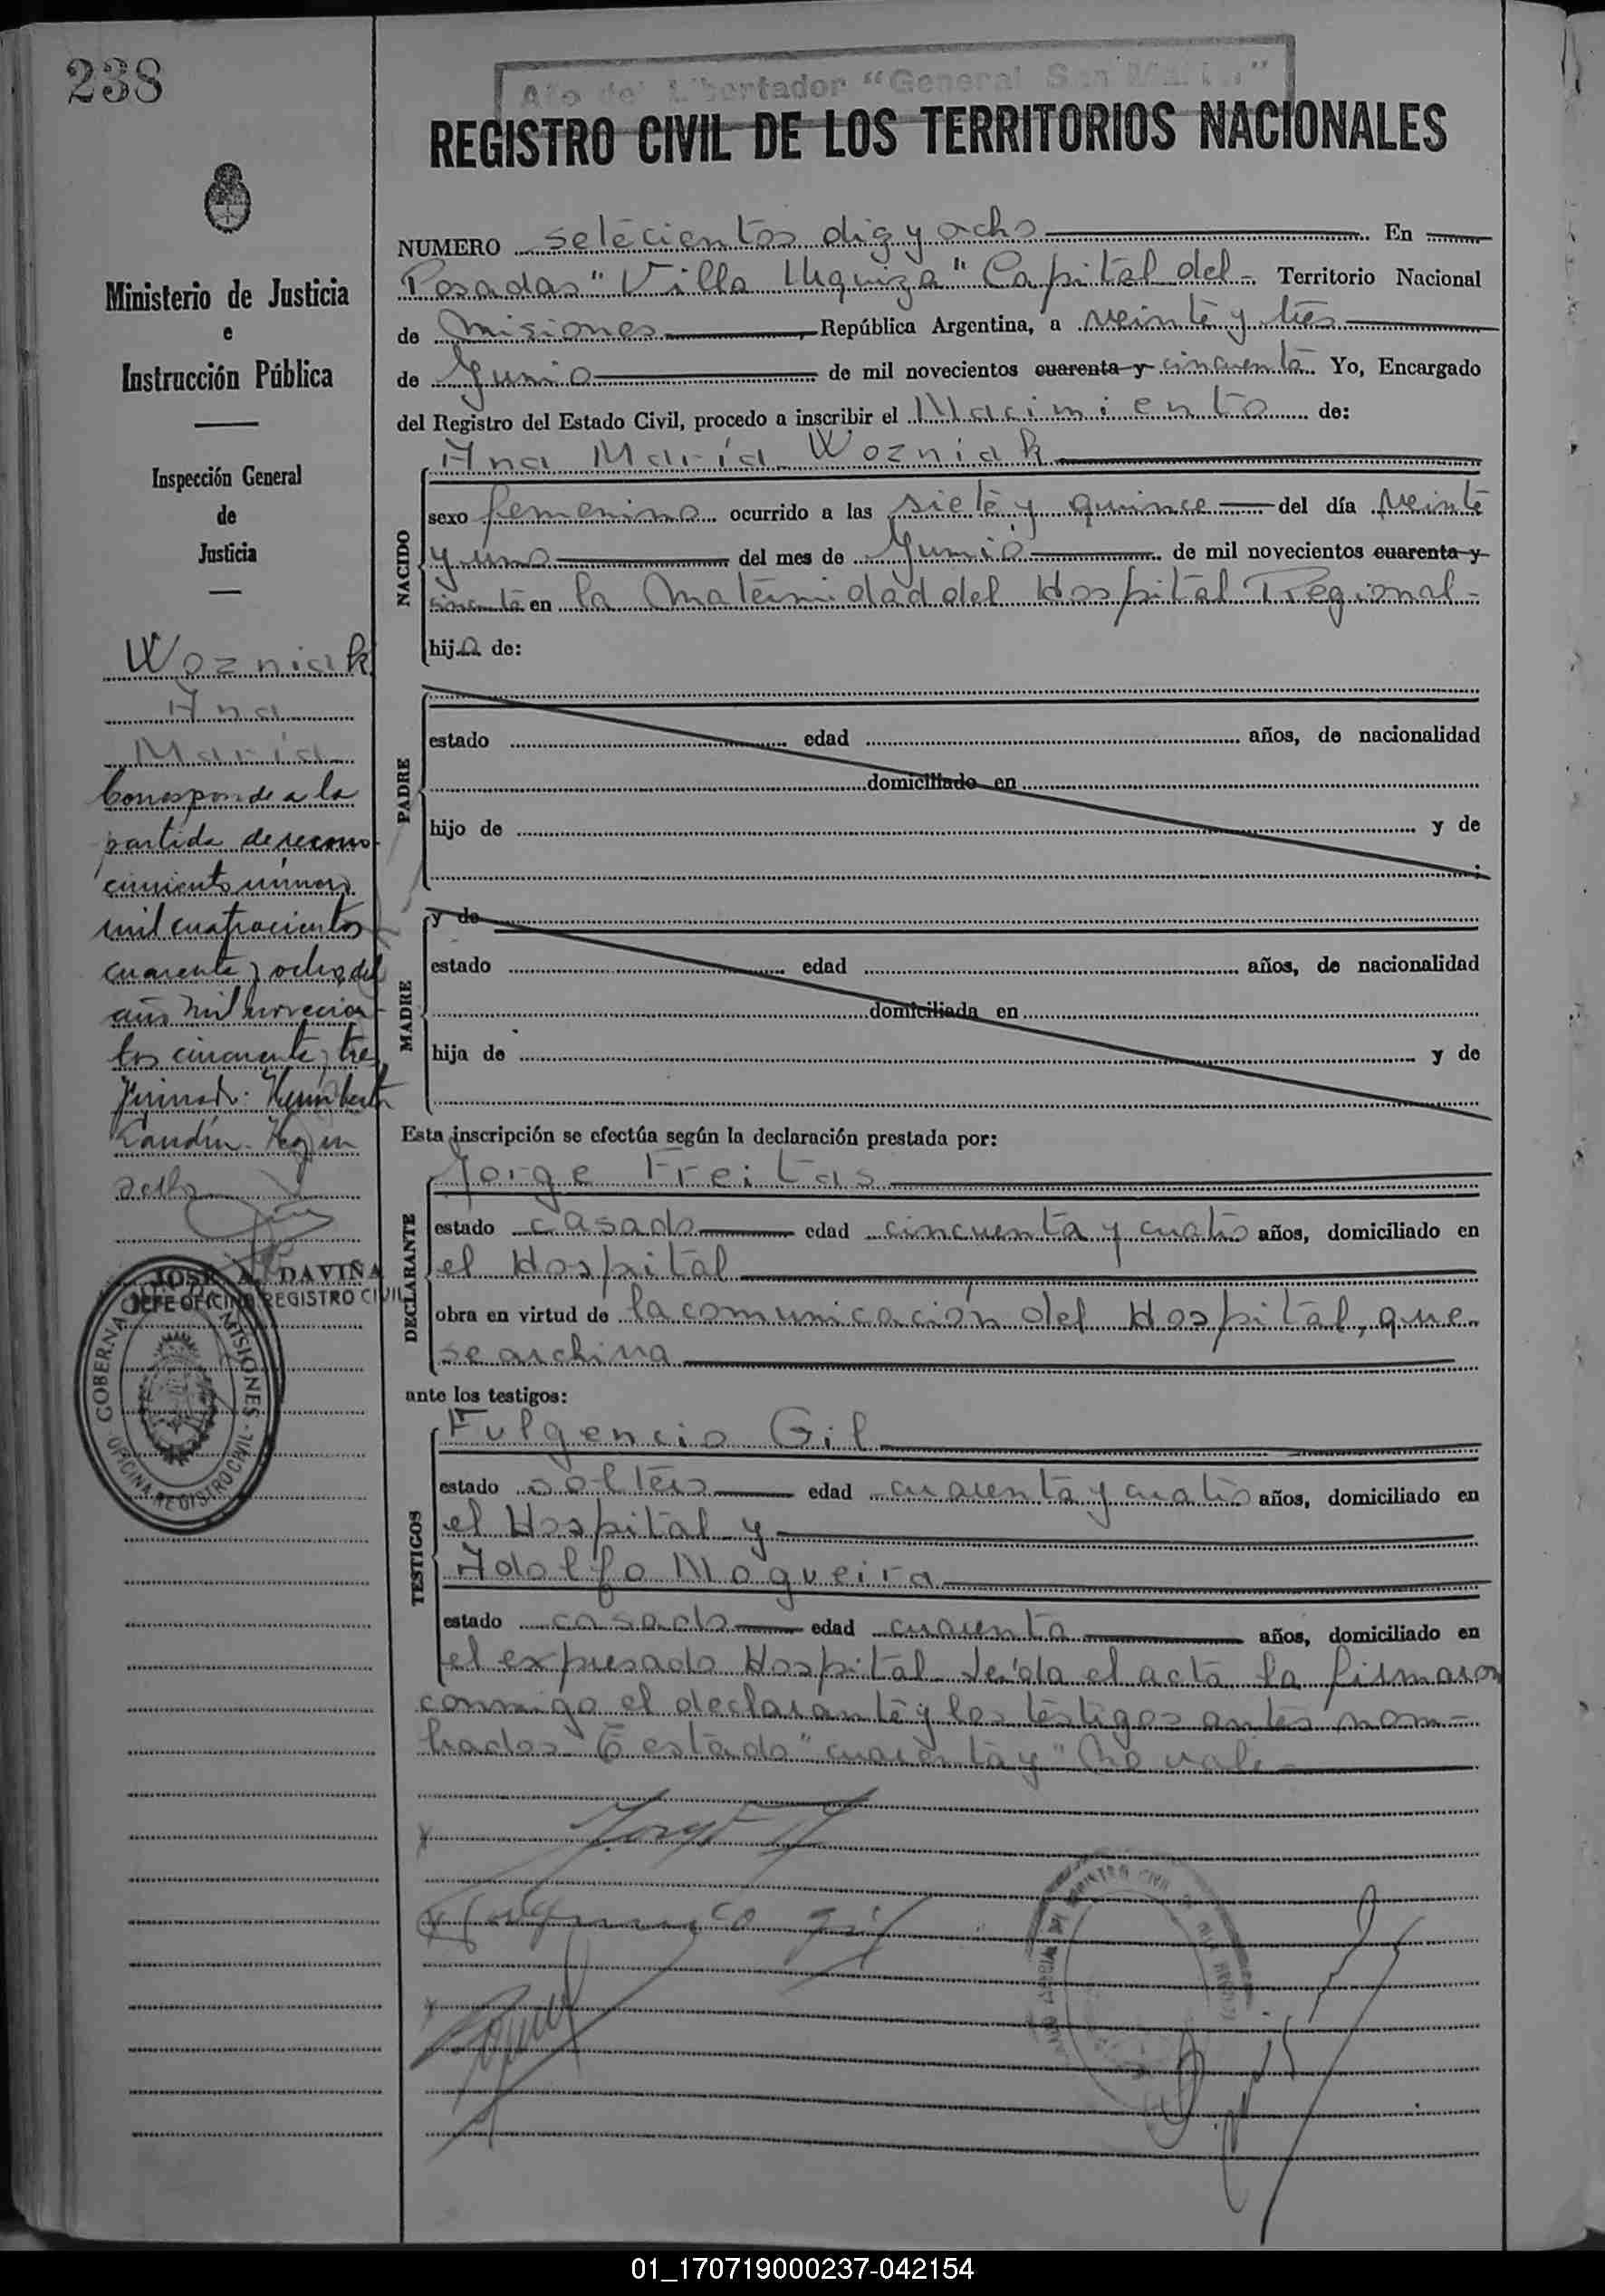 238
Año del Libertador "General San Martín"
REGISTRO CIVIL DE LOS TERRITORIOS NACIONALES
Ministerio de Justicia
e
Instrucción Pública
Inspección General
de
Justicia
Wozniak
Ana
María
Corresponde a la
partida de recono-
cimiento número
mil cuatrocientos
cuarenta y ocho del
año mil novecien-
tos cincuenta y tres
Firmado: Humberto
Landín. Hay un
sello
JOSE A. DAVIÑA
JEFE OFICINA REGISTRO CIVIL
GOBERNA MISIONES - OFICINA REGISTRO CIVIL -
NUMERO setecientos diez y ocho En
Posadas "Villa Urquiza" Capital del - Territorio Nacional
de Misiones, República Argentina, a veinte y tres
de Junio de mil novecientos cuarenta y cincuenta Yo, Encargado
del Registro del Estado Civil, procedo a inscribir el Nacimiento de:
Ana María Wozniak
NACIDO
sexo femenino ocurrido a las siete y quince del día veinte
y uno del mes de Junio de mil novecientos cuarenta y
cincuenta en la Maternidad del Hospital Regional -
hija de:
PADRE
estado edad años, de nacionalidad
domiciliado en
hijo de y de
;
MADRE
y de
estado edad años, de nacionalidad
domiciliada en
hija de y de
Esta inscripción se efectúa según la declaración prestada por:
DECLARANTE
Jorge Freitas
estado casado edad cincuenta y cuatro años, domiciliado en
el Hospital
obra en virtud de la comunicación del Hospital, que
se archiva
ante los testigos:
TESTIGOS
Fulgencio Gil
estado soltero edad cuarenta y cuatro años, domiciliado en
el Hospital y
Adolfo Nogueira
estado casado edad cuarenta años, domiciliado en
el expresado Hospital. Leída el acta la firmaron
conmigo el declarante y los testigos antes nom-
brados. E estado "cuarenta y" No vale
01_170719000237-042154